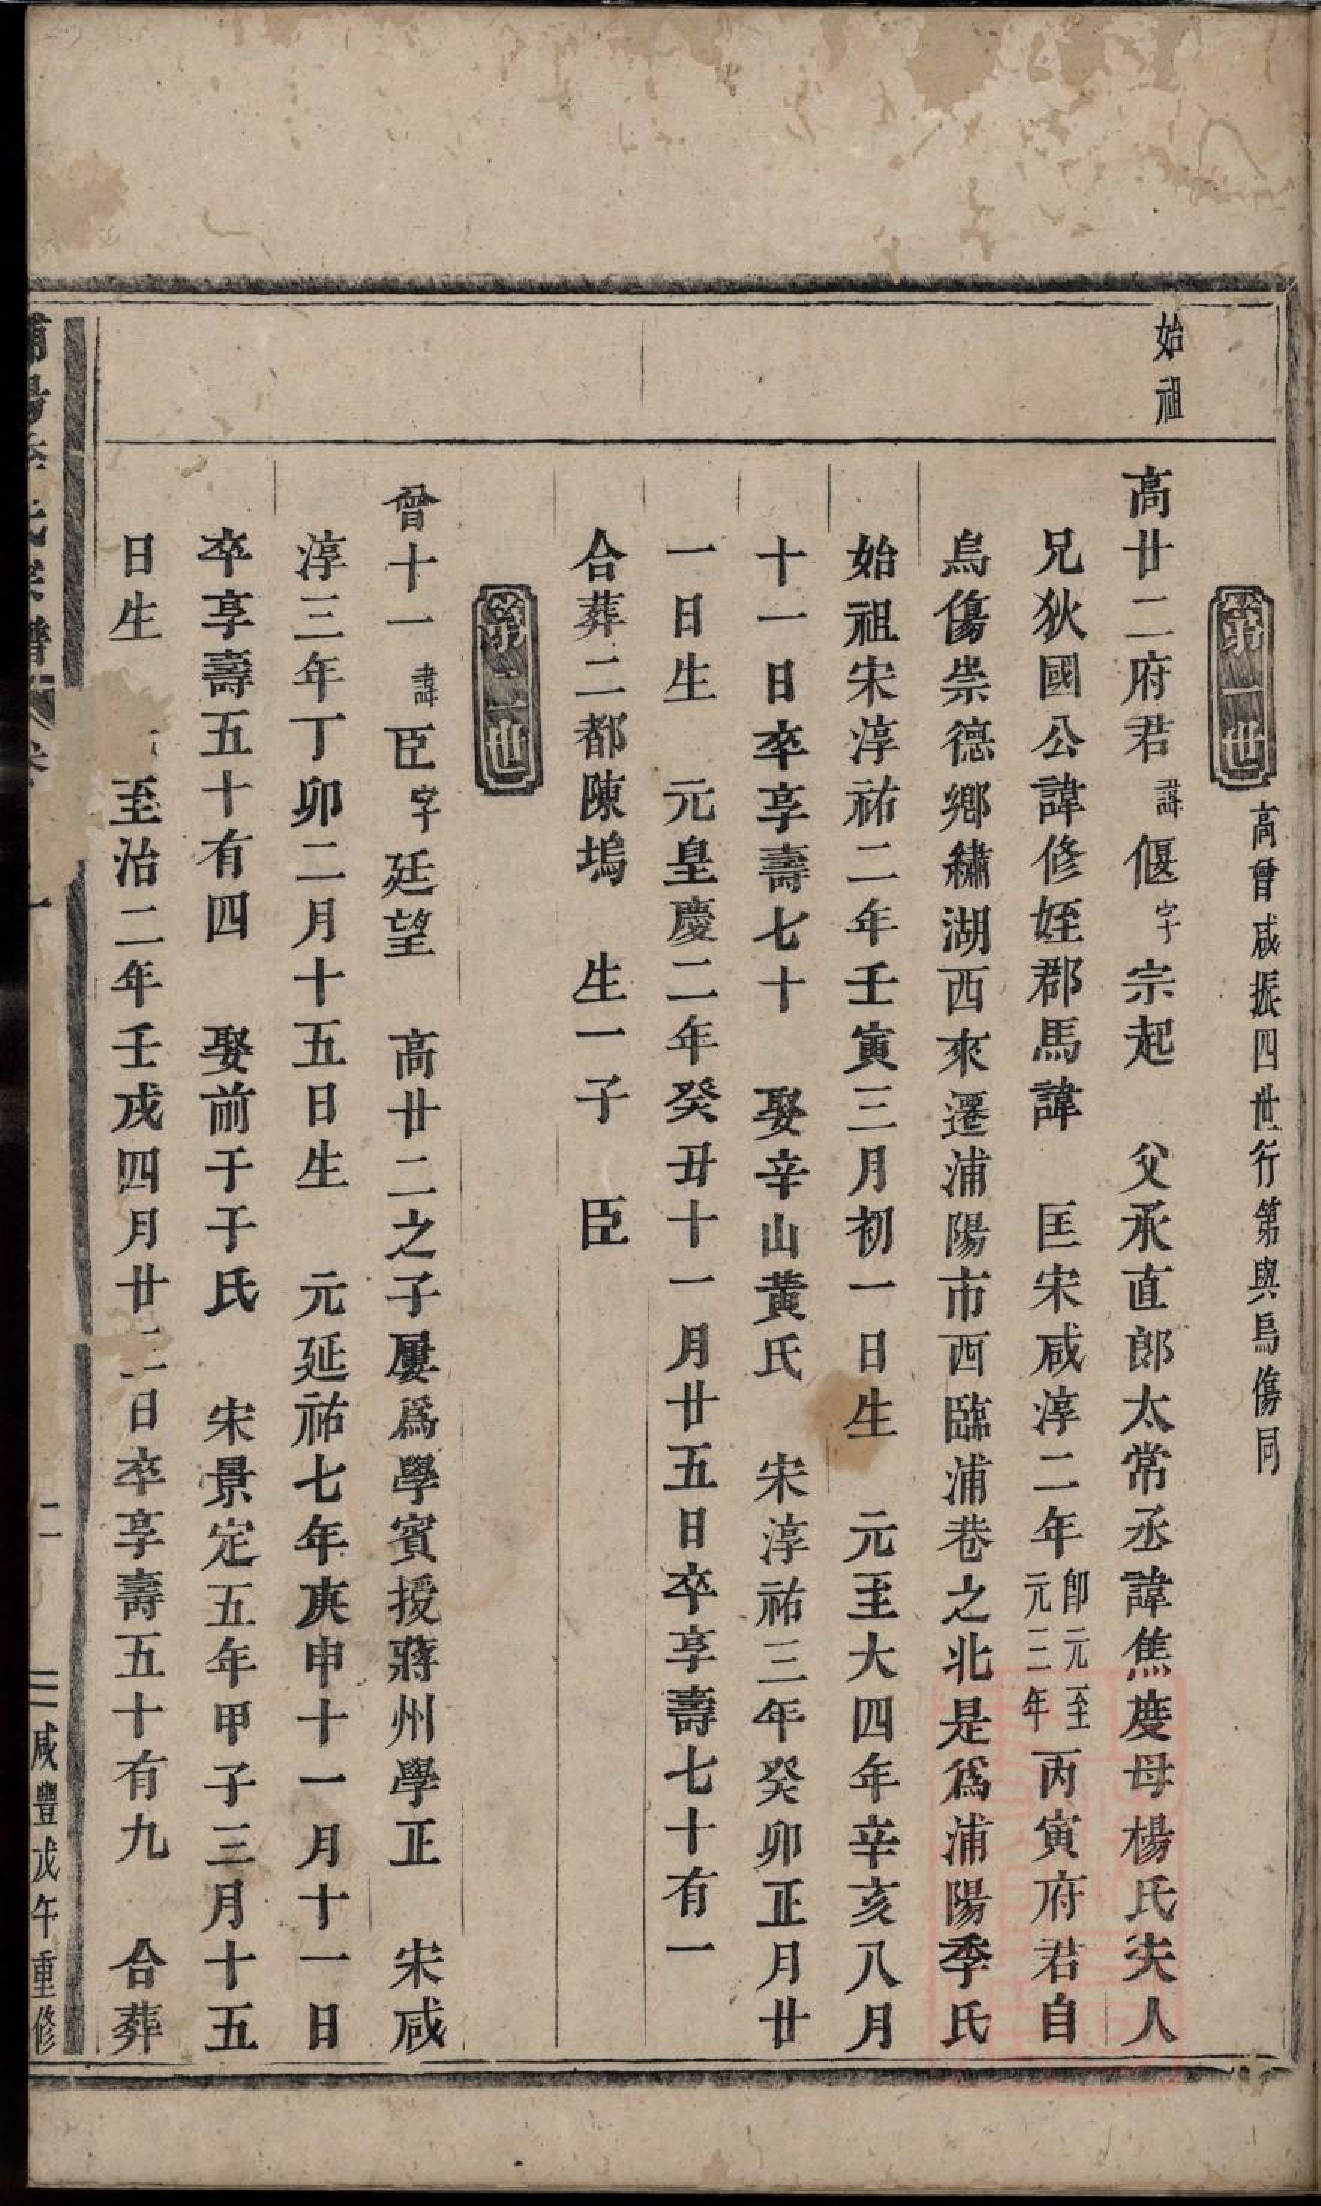 始祖
第一世
高曾咸振四世行第與烏傷同
高廿二府君諱偃字宗起 父承直郎太常丞諱焦度母楊氏夫人
兄狄國公諱修姪郡馬諱 匡宋咸淳二年卽元至元三年丙寅府君自
烏傷崇德鄉繡湖西來遷浦陽市西臨浦巷之北是爲浦陽季氏
始祖宋淳祐二年壬寅三月初一日生 元至大四年辛亥八月
十一日卒享壽七十 娶辛山黃氏 宋淳祐三年癸卯正月廿
一日生 元皇慶二年癸丑十一月廿五日卒享壽七十有一
合葬二都陳塢 生一子 臣
第二世
曾十一諱臣字廷望 高廿二之子屢爲學賓授蔣州學正 宋咸
淳三年丁卯二月十五日生 元延祐七年庚申十一月十一日
卒享壽五十有四 娶前于于氏 宋景定五年甲子三月十五
日生 至治二年壬戌四月廿二日卒享壽五十有九 合葬
浦陽季氏宗譜 卷 二 咸豐戊午重修